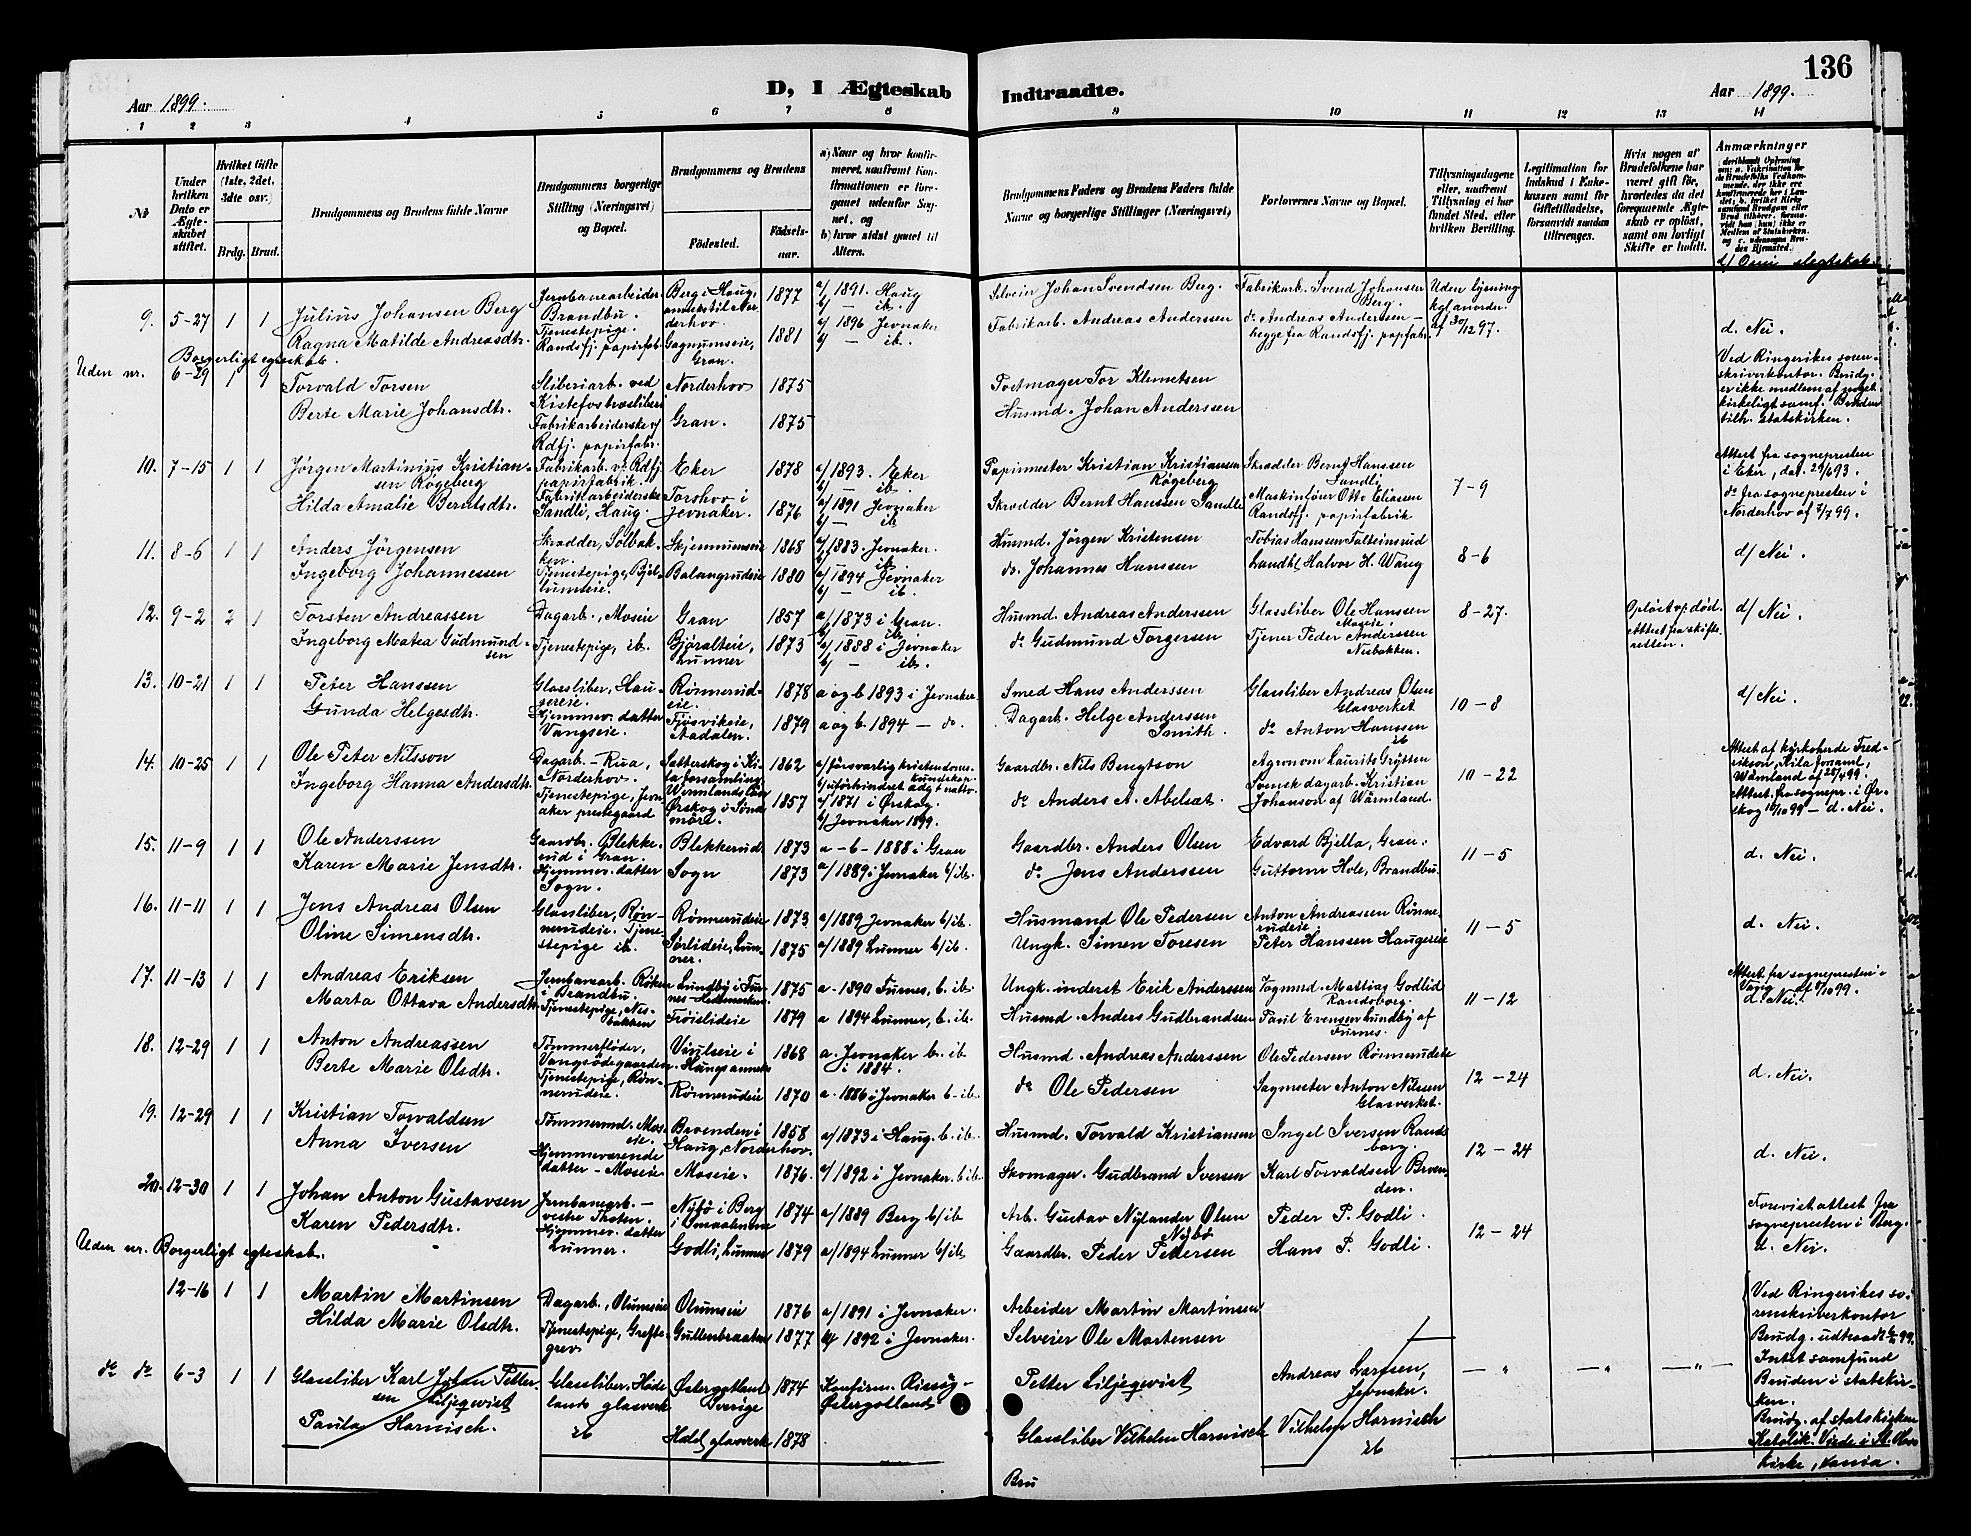 136
D, I Ægteskab Indtraadte.
Aar 1899. Aar 1899.
1 2 3 4 5 6 7 8 9 10 11 12 13 14
№
Under hvilken Dato er Ægteskabet stiftet.
Hvilket Gifte (1ste, 2det, 3die osv.)
Brdg. Brud.
Brudgommens og Brudens fulde Navne
Brudgommens borgerlige Stilling (Næringsvei) og Bopæl.
Brudgommens og Brudens
Födested. Födsels-aar.
a) Naar og hvor konfirmeret, saafremt Konfirmationen er foregaaet udenfor Sognet, og
b) hvor sidst gaaet til Alters.
Brudgommens Faders og Brudens Faders fulde Navne og borgerlige Stillinger (Næringsvei)
Forlovernes Navne og Bopæl.
Tillysningsdagene eller, saafremt Tillysning ei har fundet Sted, efter hvilken Bevilling.
Legitimation for Indskud i Enkekassen samt for Giftetilladelse, forsaavidt saadan tiltrænges.
Hvis nogen af Brudefolkene har været gift för, hvorledes da det foregaaende Ægteskab er oplöst, samt om lovligt Skifte er holdt.
Anmærkninger
d/ Om slegtskab
9. 5-27 1 1 Julius Johansen Berg Jernbanearbeider Brandbu. Berg i Haug, annex til Norderhov 1877 a/ 1891. Haug b/ — ib. Selveier Johan Svendsen Berg. Fabrikarb. Svend Johansen Berg. Uden lysning kgl. anordn. af 30/12 97.
Ragna Matilde Andreasdtr. Tjenestepige. Randsfj. papirfab. Gagnumseie, Gran. 1881 a/ 1896 Jevnaker b/ — ib. Fabrikarb. Andreas Anderssen do Andreas Anderssen — begge fra Randsfj. papfabr. d. Nei.
Uden nr. Borgerligt egteskab.
6-29 1 1 Torvald Torsen Sliberiarb. ved Kistefos træsliberi Norderhov 1875 Postmager Tor Klemetsen
Berte Marie Johansdtr. Fabrikarbeiderske v/ Rdfj. papirfabr. Gran. 1875 Husmd. Johan Anderssen
Ved Ringerikes sorenskriverkontor. Brudg. er ikke medlem af noget kirkeligt samf. Bruden tilh. statskirken.
10. 7-15 1 1 Jørgen Martinius Kristiansen Røgeberg Fabrikarb. v. Rdfj. papirfabrik. Eker 1878 a/ 1893. Eker b/ — ib. Papirmester Kristian Kristiansen Røgeberg Skrædder Bernt Hanssen Sandli 7-9
Hilda Amalie Berntsdtr. Fabrikarbeiderske Sandli, Haug. Torshov i Jevnaker. 1876 a/ 1891 Jevnaker b/ — ib. Skrædder Bernt Hanssen Sandli Maskinfører Otto Eliassen Randsfj. papirfabrik
Attest fra sognepresten i Eker, dat. 29/6 93. do fra sognepresten i Norderhov af 7/7 99.
11. 8-6 1 1 Anders Jörgensen Skrædder, Solbakken. Skjennumseie 1868 a/ 1883. Jevnaker. b/ — ib. Husmd. Jörgen Kristensen Tobias Hanssen Falteinsrud 8-6 d/ Nei.
Ingeborg Johannessen Tjenestepige, Bjellumseie. Balangrudeie 1880 a/ 1894 Jevnaker b/ — ib. do. Johannes Hanssen Landhl. Halvor H. Wang
12. 9-2 2 1 Torsten Andreassen Dagarb., Moseie Gran 1857 a/ 1873 i Gran. b/ ib. Husmd. Andreas Anderssen Glassliber Ole Hanssen Moseie. 8-27. Opløst v. död. Attest fra skifteretten. d/ Nei.
Ingeborg Matea Gudmundsen Tjenestepige, ib. Gjøralteie, Lunner 1873 a/ 1888 i Jevnaker b/ — ib. do Gudmund Torgersen Tjener Peder Anderssen Nesbakken.
13. 10-21 1 1 Peter Hanssen Glassliber, Haugereie. Rönnerudeie. 1878 a og b 1893 i Jevnaker Smed Hans Anderssen Glassliber Andreas Olsen Glasverket 10-8 d/ Nei.
Gunda Helgesdtr. Hjemmev. datter Vangseie. Tjøsvikeie, Aadalen. 1879 a og b 1894 — do. Dagarb. Helge Anderssen Smith. do Anton Hanssen ib
14. 10-25 1 1 Ole Peter Nilsson Dagarb. — Rua, Norderhov. Sätterskog i Kila forsamling Wermlands Län 1862 a/ försvarlig kristendomskundskap b/ uförhindret adgt nattv. Gaardbr. Nils Bengtson Agronom Laurits Grytten 10-22
Ingeborg Hanna Andersdtr. Tjenestepige, Jevnaker prestegaard Ørskog i Söndmöre. 1857 a/ 1871 i Ørskog. b/ Jevnaker 1899. do Anders A. Abelsæt. Svensk dagarb. Kristian Johanson af Wärmland.
Attest af kyrkoherde Fredrikson, Kila församl, Wämland af 25/4 99. Attest fra sognepr. i Ørskog 10/10 99 — d. Nei.
15. 11-9 1 1 Ole Anderssen Gaardbr. Blekkerud i Gran. Blekkerud 1873 a - b - 1888 i Gran Gaardbr. Anders Olsen Edvard Bjella, Gran. 11-5 d. Nei.
Karen Marie Jensdtr. Hjemmev. datter Sogn. Sogn 1873 a/ 1889 i Jevnaker b/ ib. do Jens Anderssen Guttorm Hole, Brandbu.
16. 11-11 1 1 Jens Andreas Olsen Glassliber, Rönnerudeie. Rönnerudeie 1873 a/ 1889 Jevnaker b/ ib. Husmand Ole Pedersen Anton Andreassen Rönnerudeie. 11-5 d. Nei.
Oline Simensdtr. Tjenestepige ib. Sörlideie, Lunner. 1875 a/ 1889 Lunner b/ ib. Ungk. Simen Toresen Peter Hanssen Haugereie
17. 11-13 1 1 Andreas Eriksen Jernbanearb. Røken i Brandbu. Lundby i Furnes - Hedemarken. 1875 a. 1890 Furnes, b. ib. Ungk. inderst Erik Anderssen Vognmd. Mattias Godlid Randsborg. 11-12
Marta Ottava Andersdtr. Tjenestepige, Nesbakken Tröislideie 1879 a 1894 Lunner, b. ib. Husmd. Anders Gudbrandsen Paul Evensen Lundby af Furnes.
Attest fra sognepresten i Vang af 9/10 99. d. Nei.
18. 12-29 1 1 Anton Andreassen Tömmerflöder, Vangsödegaarden Vivilseie i Haugs anneks 1868 a. Jevnaker b. ib i 1884. Husmd. Andreas Anderssen Ole Pedersen Rönnerudeie 12-24 d. Nei.
Berte Marie Olsdtr. Tjenestepige, Rönnerudeie. Rönnerudeie 1870 a. 1886 i Jevnaker b. ib. do Ole Pedersen Sagmester Anton Nilssen Glasverket.
19. 12-29 1 1 Kristian Torvaldsen Tømmermd. Moseie. Brænden i Haug, Norderhov. 1858 a/ 1873 i Haug. b. ib. Husmd. Torvald Kristiansen Ingel Iversen Randsborg. 12-24 d. Nei.
Anna Iversen Hjemmeværende datter — Moseie Moseie. 1876. a/ 1892 i Jevnaker. b ib. Skomager. Gudbrand Iversen Karl Torvaldsen Brænden.
20. 12-30 1 1 Johan Anton Gustavsen Jernbanearb. — vestre Thoten. Nybø i Berg i Smaalenene 1874 a/ 1889 Berg b/ ib Arb. Gustav Nylander Olsen Nybø Peder P. Godli. 12-24
Karen Pedersdtr. Hjemmev. datter Lunner. Godli, Lunner 1879 a/ 1894 Lunner b/ ib. Gaardbr. Peder Pedersen Hans P. Godli.
Forevist attest fra sognepresten i Berg. d. Nei.
Uden nr. Borgerligt egteskab.
12-16 1 1 Martin Martinsen Dagarb., Olumseie Olumseie 1876 a/ 1891 i Jevnaker. Arbeider Martin Martinsen
Hilda Marie Olsdtr. Tjenestepige, Greftegrev Gullenbraaten 1877 a/ 1892 i Jevnaker. Selveier Ole Mortensen
Ved Ringerikes sorenskriverkontor Brudg. udtraadt 99. Intet samfund Bruden i statskirken.
do do 6-3 1 1 Glassliber Karl Johan Pettersen Liljeqvist Glassliber. Hadelands glasverk Østergotland Sverige 1874 Konfirm. Østergotland Petter Liljeqvist Andreas Larssen, Jevnaker. — „ — „ — „ —
Paula Harnisch. ib Hdel. glasverk 1878 Glassliber Vilhelm Harnisch Vilhelm Harnisch ib
Brudg. af statskirken Katolik. Viede i St. Olavs kirke, Kania.
Bru